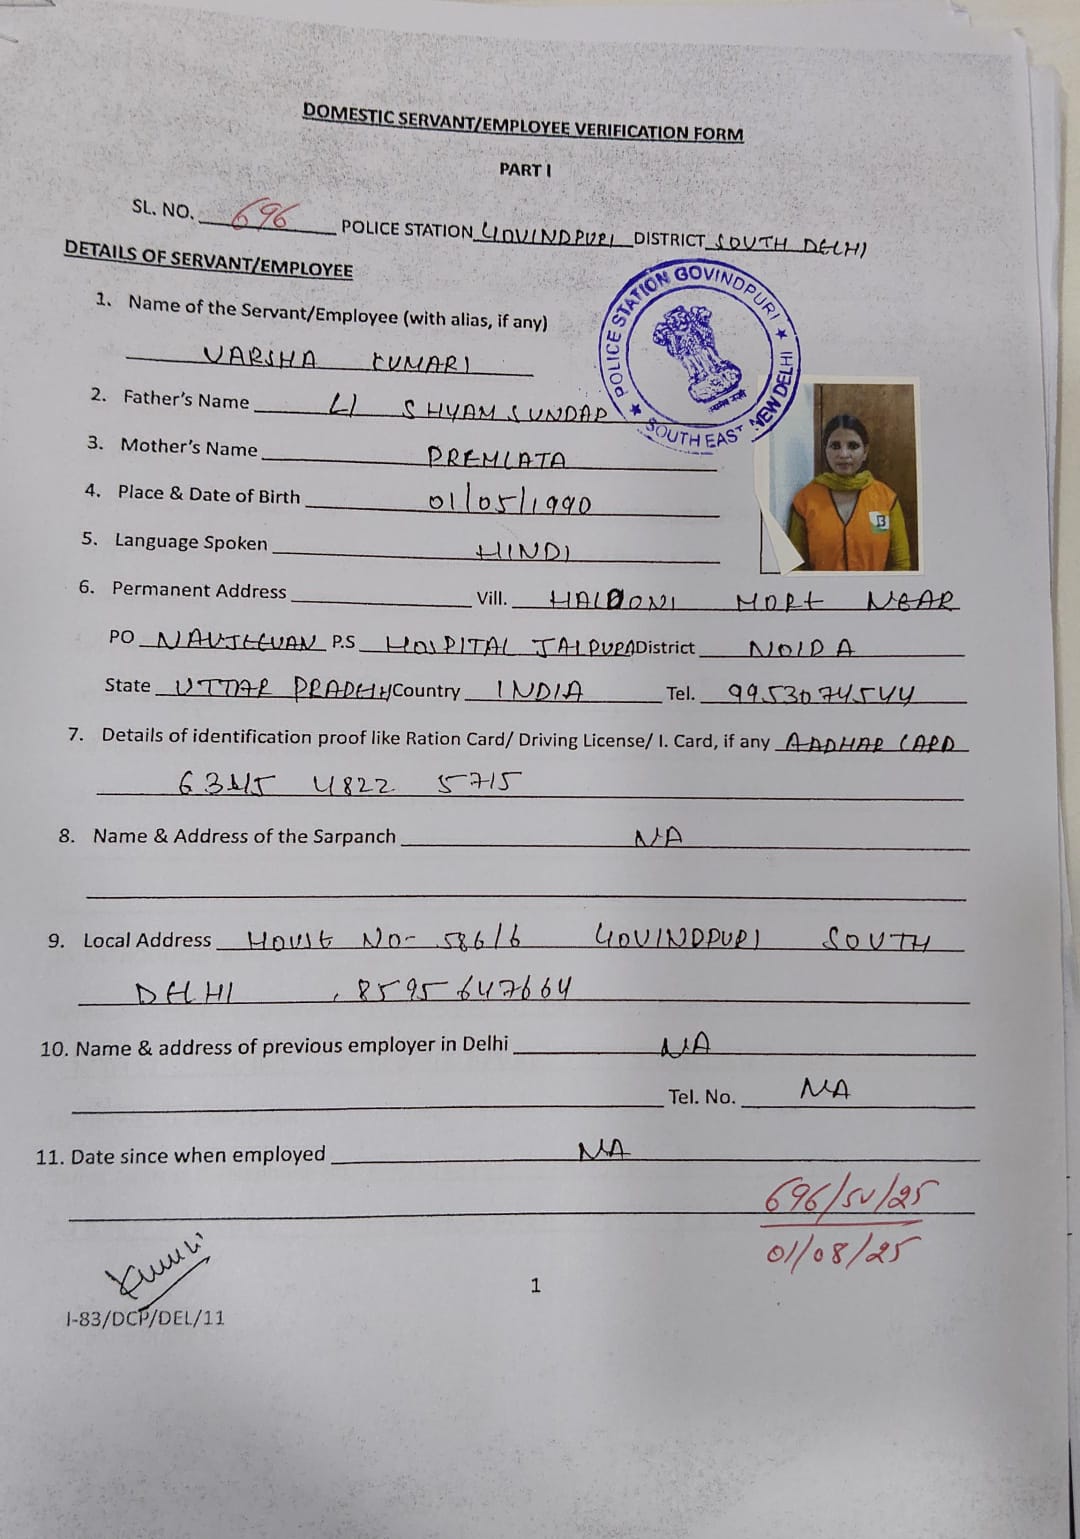 DOMESTIC SERVANT/EMPLOYEE VERIFICATION FORM
PART I
SL. NO. 696 POLICE STATION GOVINDPURI DISTRICT SOUTH DELHI
DETAILS OF SERVANT/EMPLOYEE
1. Name of the Servant/Employee (with alias, if any)
VARSHA KUMARI
POLICE STATION GOVINDPURI ★ SOUTH EAST NEW DELHI ★
2. Father's Name SHYAM SUNDAR
3. Mother's Name PREMLATA
4. Place & Date of Birth 01/05/1990
5. Language Spoken HINDI
6. Permanent Address Vill. HALDONI MORE NEAR
PO NAVJEEVAN P.S HOSPITAL JALPURA District NOIDA
State UTTAR PRADESH Country INDIA Tel. 9953074544
7. Details of identification proof like Ration Card/ Driving License/ I. Card, if any AADHAR CARD
4822 5715
8. Name & Address of the Sarpanch NA
9. Local Address HOUSE NO- 586/6 GOVINDPURI SOUTH
DELHI, 8595647664
10. Name & address of previous employer in Delhi NA
Tel. No. NA
11. Date since when employed NA
696/SV/25
01/08/25
1
I-83/DCP/DEL/11